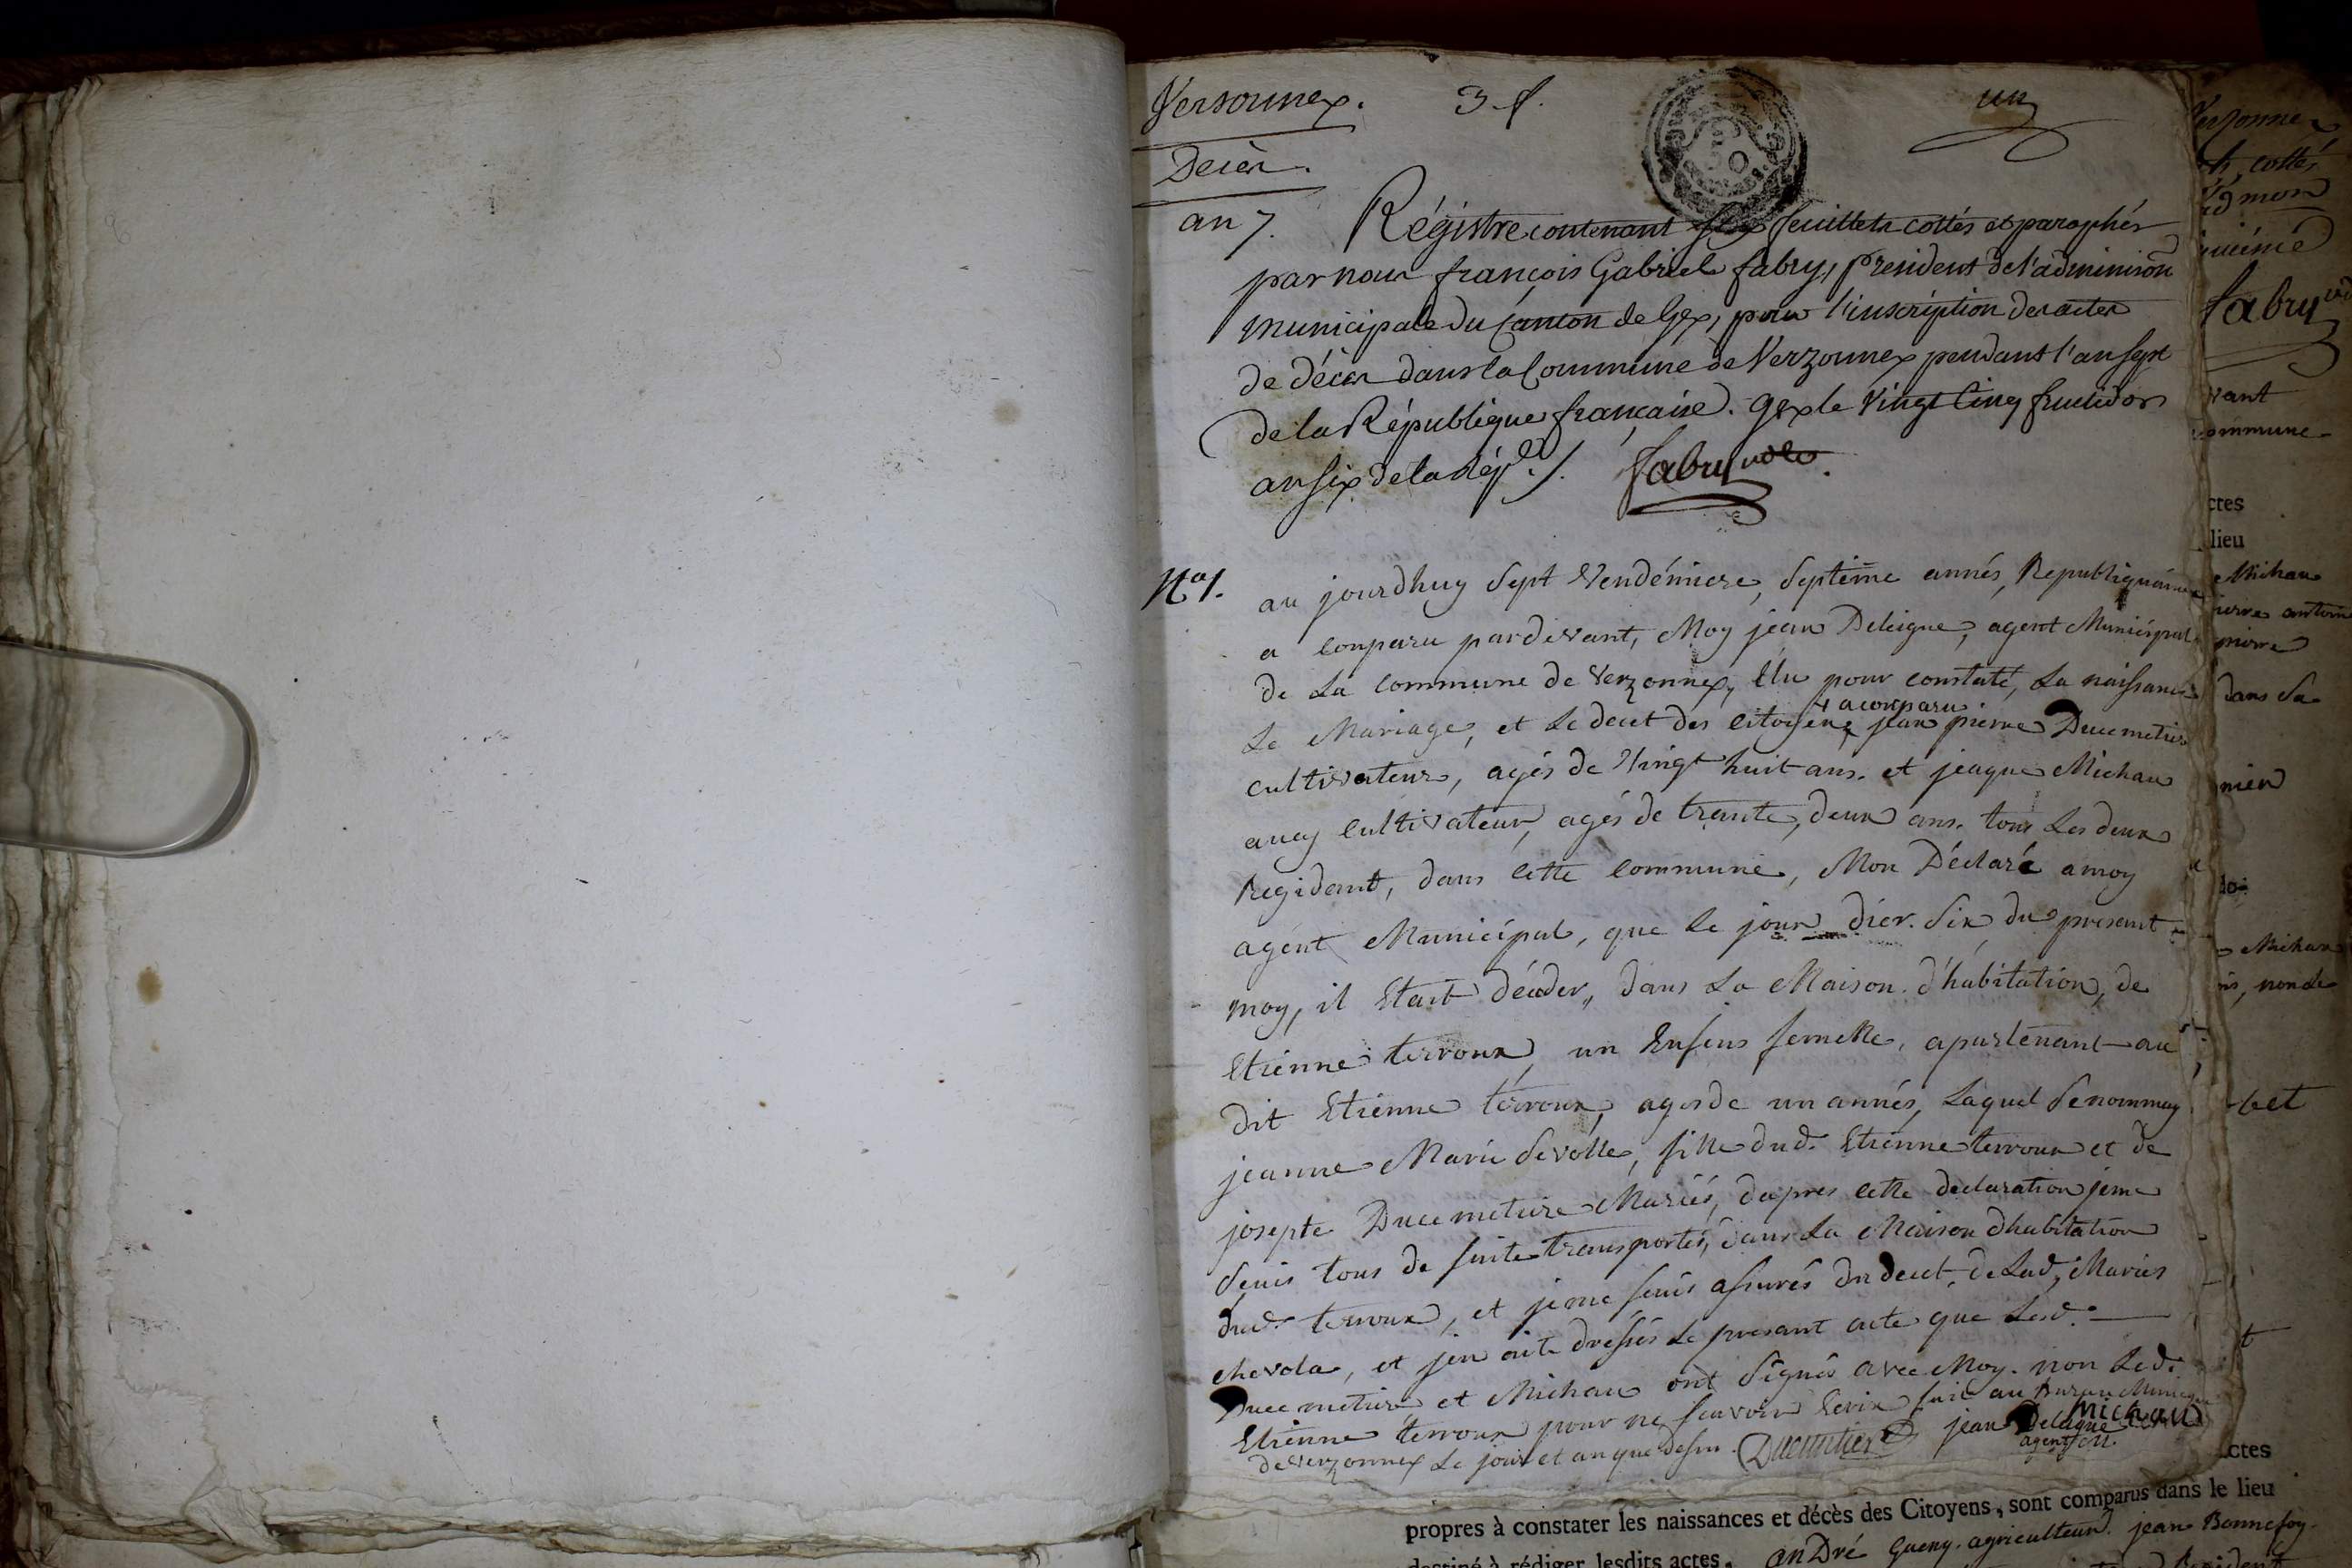 Versonnex. 3 f. un
Décès.
an 7. Régistre contenant six feuillets cottés et paraphés
par nous françois Gabriel fabry, président de l'adminison
municipale du Canton de Gex, pour l'inscription des actes
de décès dans la Commune de Verzonnex pendant l'an sept
de la République française. Gex le Vingt Cinq fructidor
an Six de la Rép.e /. fabry
No 1. au jourdhuy Sept Vendémiere, Septême annés, Republiquaine
a conparu pardevant, Moy jean Deleigne, agent Municipal
de La Commune de Verzonnex, Elu pour constaté, La naissance
a conparu
Le Mariage, et Le decet des citoyens, jean pierre Ducemetier
cultivateur, agés de Vingt huit ans. et jeaque Michau
aucy Cultivateur, agés de trante, deux ans. tous Les deux
Regidant, dans Cette Commune, Mon Déclaré a moy
agent Municipal, que le jour dier. Six du presant
moy, il Etait déceder, dans La Maison d'habitation, de
Etienne terroux, un Enfens femelle, apartenant au
dit Etienne terroux, agés de un annés, Laquel Senommay
jeanne Marie Sevolle, fille dud. Etienne terroux et de
josepte Ducemetiere Mariés, dapres Cette declaration jeme
Seuis tous de suite transportés, dans La Maison dhabitation
dud. terroux, et jeme seuis assurés du decet, de Lad. Maries
chevola, et jen aite dressés Le presant acte que Lesd.
Ducemetier et Michau ont Signés avec Moy. non Led.
Etienne terroux pour ne seavoir Ecrire fait au Bureau Municipal
de Verzonnex Le jour et an que desu. Ducimtier jean Deleigne michau
agent M.
Verzonnex
cottés
mon
fabry
vant
commune
ctes
lieu
Michau
pierre antoine
dans Sa
Michau
, non Le
ctes
propres à constater les naissances et décès des Citoyens, sont comparus dans le lieu
destiné à rédiger lesdits actes, anDré Gueny. agriculteur. jean Bonnefoy